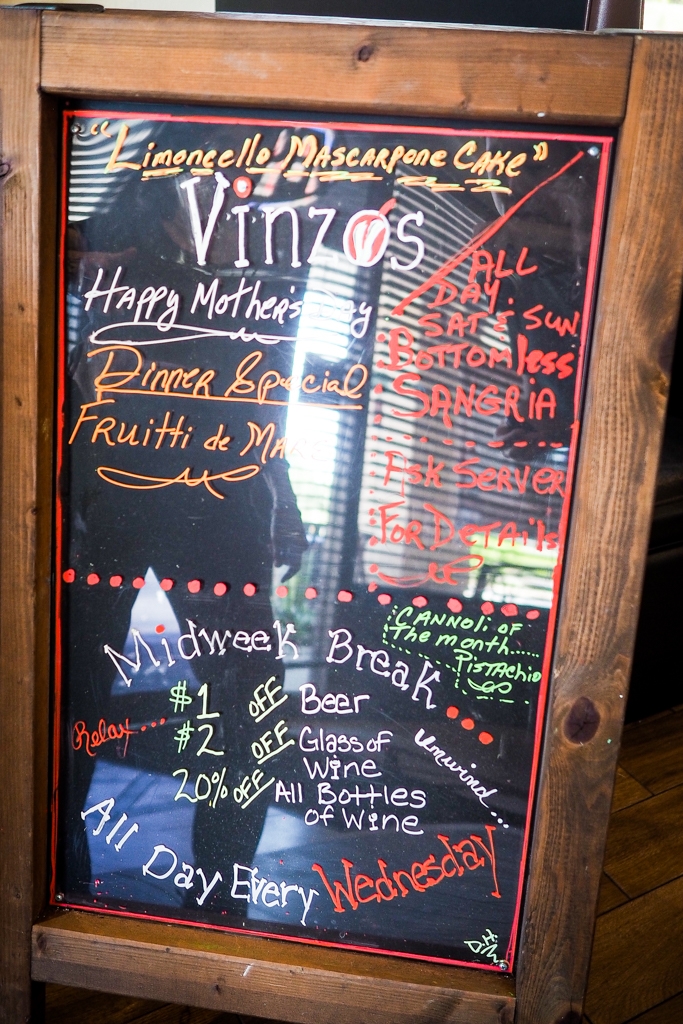 "Limoncello Mascarpone Cake"
Vinzos
Happy Mother's Day
Dinner Special
Fruitti de Mare
ALL
DAY.
SAT & SUN
Bottomless
SANGRIA
Ask Server
For Details
Midweek Break...
CANNOLI OF
The month.....
PISTAChio
Relax...
$1 OFF Beer
$2 OFF Glass of
Wine
20% OFF All Bottles
of Wine
Unwind...
All Day Every Wednesday